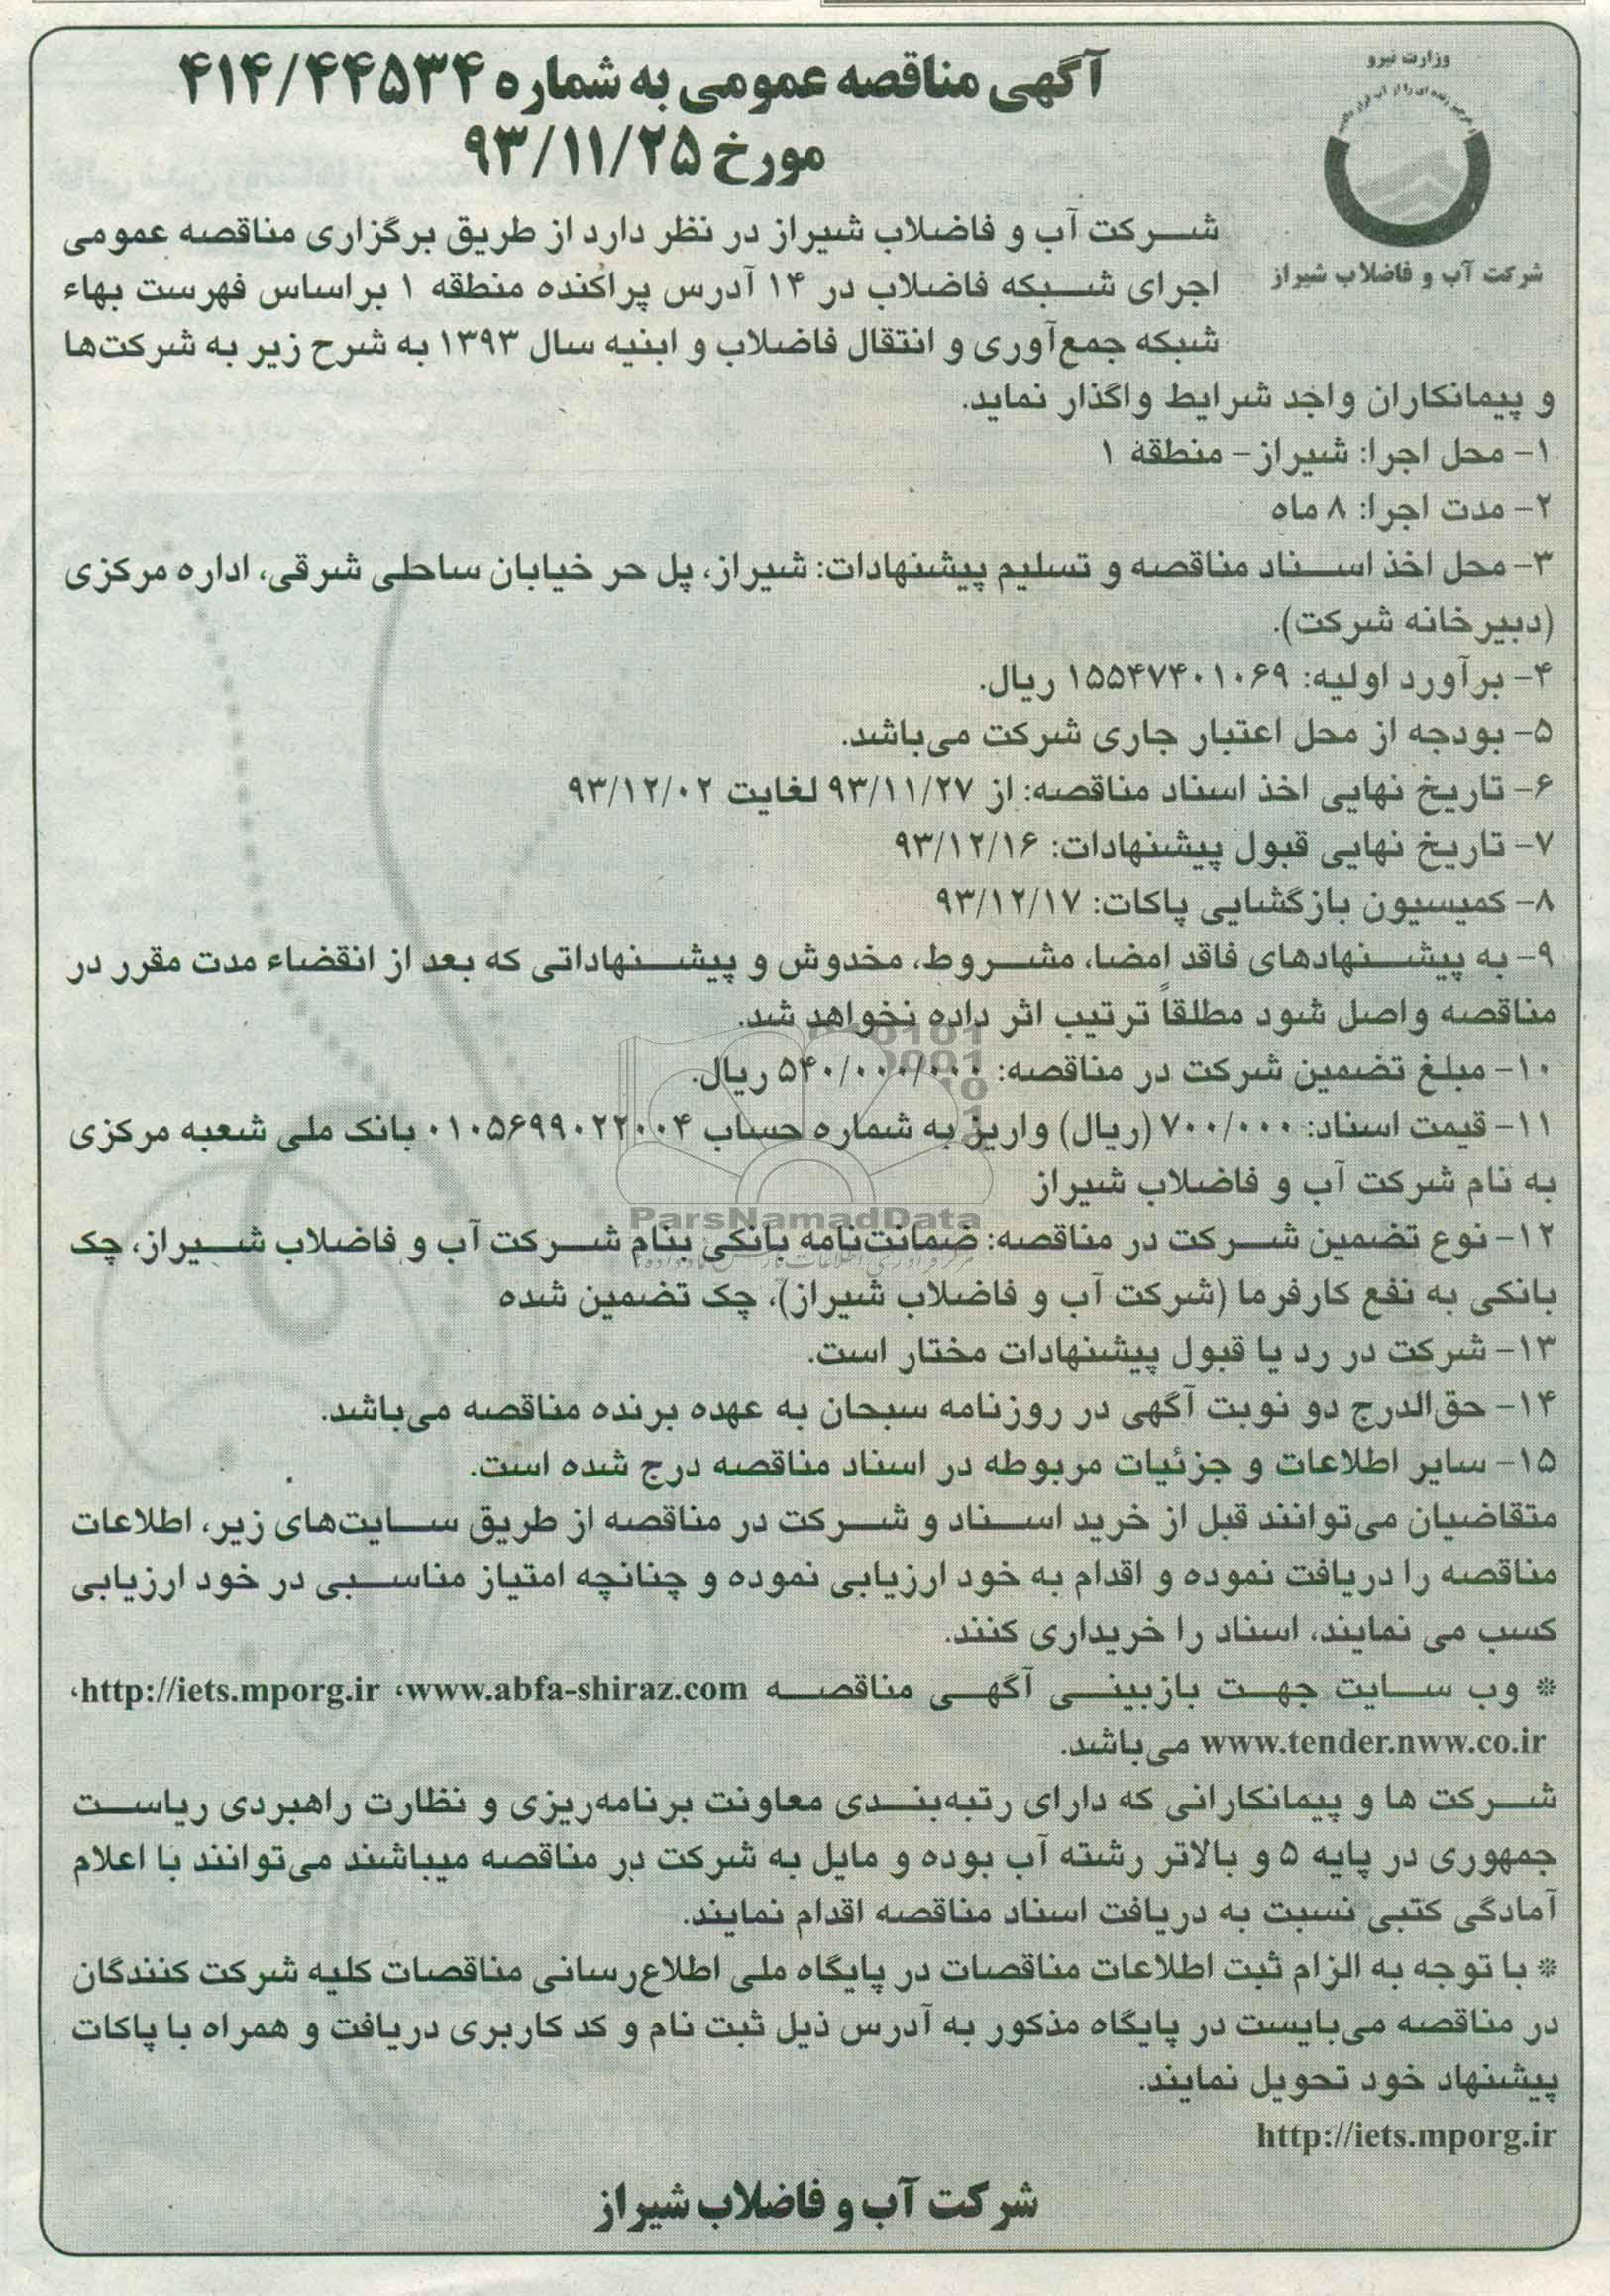 وزارت نیرو
شرکت آب و فاضلاب شیراز
آگهی مناقصه عمومی به شماره ۴۱۴/۴۴۵۳۴
مورخ ۹۳/۱۱/۲۵
شرکت آب و فاضلاب شیراز در نظر دارد از طریق برگزاری مناقصه عمومی
اجرای شبکه فاضلاب در ۱۴ آدرس پراکنده منطقه ۱ براساس فهرست بهاء
شبکه جمع‌آوری و انتقال فاضلاب و ابنیه سال ۱۳۹۳ به شرح زیر به شرکت‌ها
و پیمانکاران واجد شرایط واگذار نماید.
۱- محل اجرا: شیراز- منطقه ۱
۲- مدت اجرا: ۸ ماه
۳- محل اخذ اسناد مناقصه و تسلیم پیشنهادات: شیراز، پل حر خیابان ساحلی شرقی، اداره مرکزی
(دبیرخانه شرکت).
۴- برآورد اولیه: ۱۵۵۴۷۴۰۱۰۶۹ ریال.
۵- بودجه از محل اعتبار جاری شرکت می‌باشد.
۶- تاریخ نهایی اخذ اسناد مناقصه: از ۹۳/۱۱/۲۷ لغایت ۹۳/۱۲/۰۲
۷- تاریخ نهایی قبول پیشنهادات: ۹۳/۱۲/۱۶
۸- کمیسیون بازگشایی پاکات: ۹۳/۱۲/۱۷
۹- به پیشنهادهای فاقد امضا، مشروط، مخدوش و پیشنهاداتی که بعد از انقضاء مدت مقرر در
مناقصه واصل شود مطلقاً ترتیب اثر داده نخواهد شد.
۱۰- مبلغ تضمین شرکت در مناقصه: ۵۴۰/۰۰۰/۰۰۰ ریال.
۱۱- قیمت اسناد: ۷۰۰/۰۰۰ (ریال) واریز به شماره حساب ۰۱۰۵۶۹۹۰۲۲۰۰۴ بانک ملی شعبه مرکزی
به نام شرکت آب و فاضلاب شیراز
ParsNamadData
۱۲- نوع تضمین شرکت در مناقصه: ضمانت‌نامه بانکی بنام شرکت آب و فاضلاب شیراز، چک
بانکی به نفع کارفرما (شرکت آب و فاضلاب شیراز)، چک تضمین شده
۱۳- شرکت در رد یا قبول پیشنهادات مختار است.
۱۴- حق‌الدرج دو نوبت آگهی در روزنامه سبحان به عهده برنده مناقصه می‌باشد.
۱۵- سایر اطلاعات و جزئیات مربوطه در اسناد مناقصه درج شده است.
متقاضیان می‌توانند قبل از خرید اسناد و شرکت در مناقصه از طریق سایت‌های زیر، اطلاعات
مناقصه را دریافت نموده و اقدام به خود ارزیابی نموده و چنانچه امتیاز مناسبی در خود ارزیابی
کسب می نمایند، اسناد را خریداری کنند.
* وب سایت جهت بازبینی آگهی مناقصه www.abfa-shiraz.com، http://iets.mporg.ir،
www.tender.nww.co.ir می‌باشد.
شرکت ها و پیمانکارانی که دارای رتبه‌بندی معاونت برنامه‌ریزی و نظارت راهبردی ریاست
جمهوری در پایه ۵ و بالاتر رشته آب بوده و مایل به شرکت در مناقصه میباشند می‌توانند با اعلام
آمادگی کتبی نسبت به دریافت اسناد مناقصه اقدام نمایند.
* با توجه به الزام ثبت اطلاعات مناقصات در پایگاه ملی اطلاع‌رسانی مناقصات کلیه شرکت کنندگان
در مناقصه می‌بایست در پایگاه مذکور به آدرس ذیل ثبت نام و کد کاربری دریافت و همراه با پاکات
پیشنهاد خود تحویل نمایند.
http://iets.mporg.ir
شرکت آب و فاضلاب شیراز